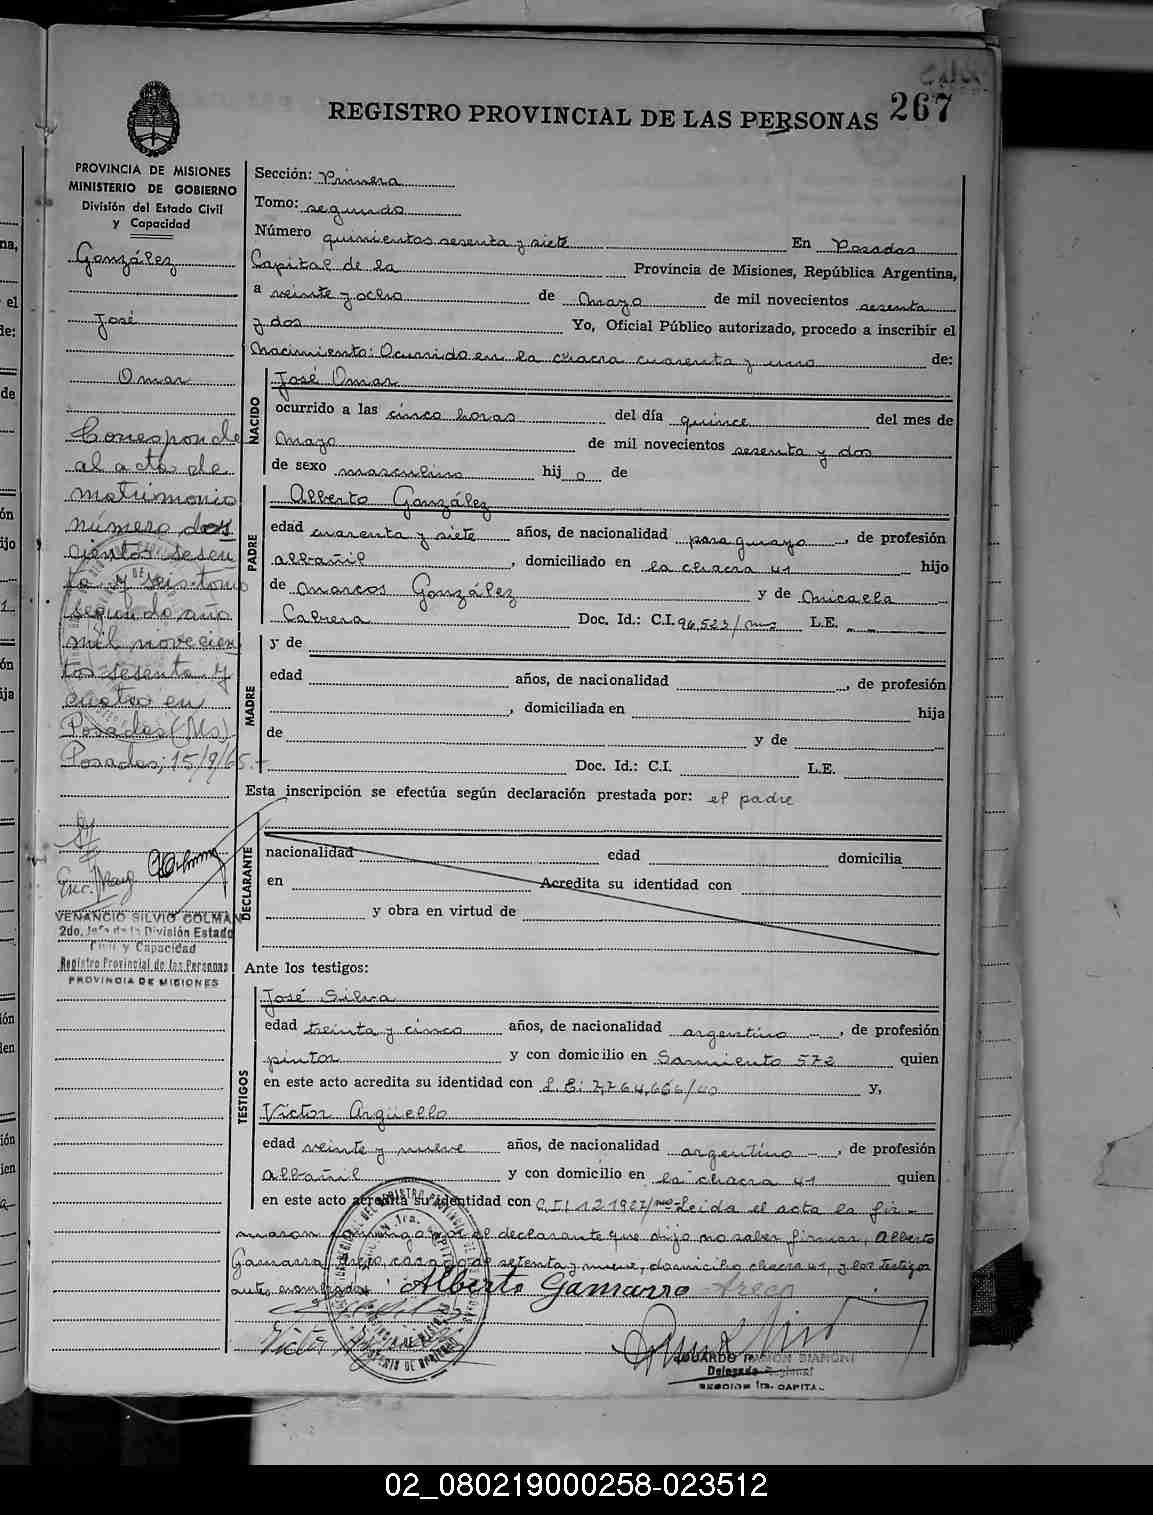 267
REGISTRO PROVINCIAL DE LAS PERSONAS
PROVINCIA DE MISIONES
MINISTERIO DE GOBIERNO
División del Estado Civil
y Capacidad
González
José
Omar
Corresponde
al acta de
matrimonio
número dos
cientos sesen
ta y seis tomo
segundo año
mil novecien
tos sesenta y
cuatro en
Posadas (Ms)
Posadas, 15/9/65.-
VENANCIO SILVIO COLMAN
2do. Jefe de la División Estado
Civil y Capacidad
Registro Provincial de las Personas
PROVINCIA DE MISIONES
Sección: Primera
Tomo: segundo
Número quinientos sesenta y siete En Posadas
Capital de la Provincia de Misiones, República Argentina,
a veinte y ocho de Mayo de mil novecientos sesenta
y dos Yo, Oficial Público autorizado, procedo a inscribir el
Nacimiento: Ocurrido en la chacra cuarenta y uno de:
NACIDO
José Omar
ocurrido a las cinco horas del día quince del mes de
Mayo de mil novecientos sesenta y dos
de sexo masculino hij o de
PADRE
Alberto González
edad cuarenta y siete años, de nacionalidad paraguayo, de profesión
albañil, domiciliado en la chacra 41 hijo
de Marcos González y de Micaela
Cabrera Doc. Id.: C.I. 96,523/ L.E.
MADRE
y de
edad años, de nacionalidad , de profesión
, domiciliada en hija
de y de
Doc. Id.: C.I. L.E.
Esta inscripción se efectúa según declaración prestada por: el padre
DECLARANTE
nacionalidad edad domicilia
en Acredita su identidad con
y obra en virtud de
Ante los testigos:
TESTIGOS
José Silva
edad treinta y cinco años, de nacionalidad argentino, de profesión
pintor y con domicilio en Sarmiento 572 quien
en este acto acredita su identidad con L.E: 7,764,666/40 y,
Víctor Argüello
edad veinte y nueve años, de nacionalidad argentino, de profesión
albañil y con domicilio en la chacra 41 quien
en este acto acredita su identidad con C.I: 121927/ Leida el acta la fir-
maron a ruego el declarante que dijo no saber firmar, Alberto
Gamarra de setenta y nueve, domicilio chacra 41, y los testigos
antes nombrados
Alberto Gamarro
Víctor
EDUARDO RAMON BIANONI
Delegado Regional
SECCION 1ra. CAPITAL
02_080219000258-023512